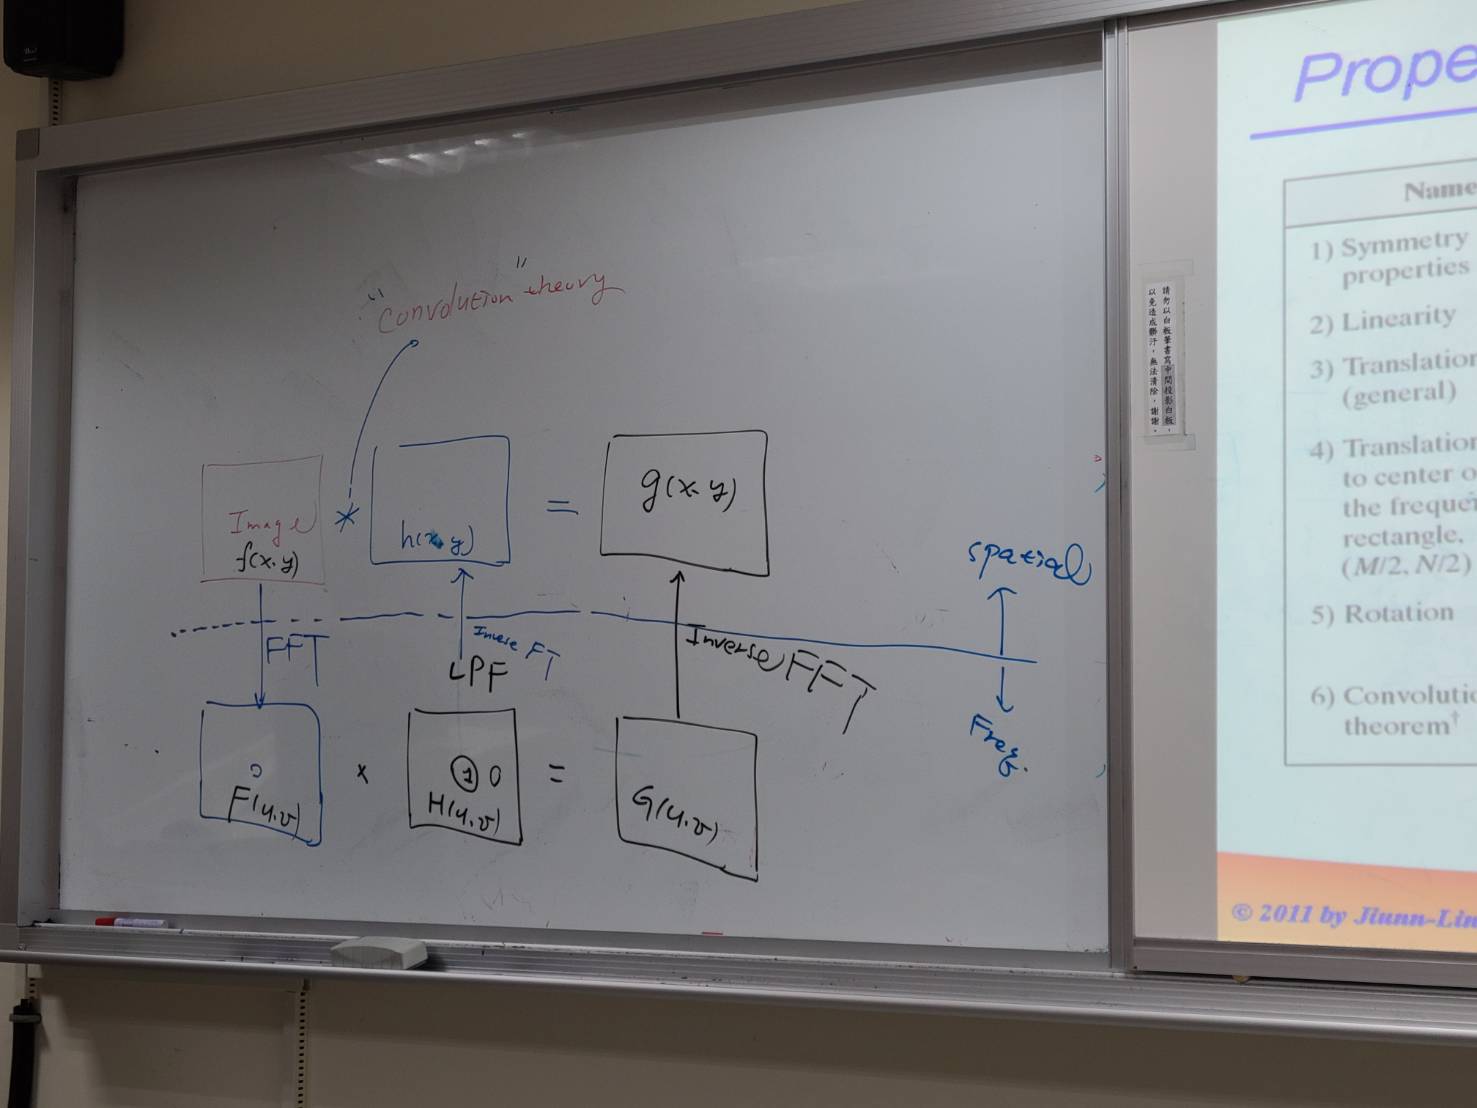 "Convolution" theory
Image
f(x,y)
*
h(x,y)
=
g(x,y)
spatial
FFT
Inverse FT
LPF
Inverse FFT
Freq.
F(u,v)
×
1 0
H(u,v)
=
G(u,v)
請勿以白板筆書寫中間投影白板，
以免造成髒汙，無法清除，謝謝。
Prope
Name
1) Symmetry
properties
2) Linearity
3) Translation
(general)
4) Translation
to center o
the freque
rectangle,
(M/2, N/2)
5) Rotation
6) Convolutio
theorem†
© 2011 by Jiunn-Lin